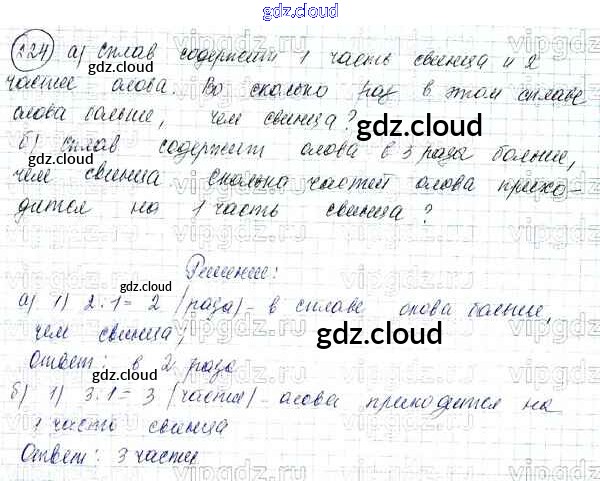 gdz.cloud
224) а) Сплав содержит 1 часть свинца и 2
части олова. Во сколько раз в этом сплаве
олова больше, чем свинца?
б) Сплав содержит олова в 3 раза больше,
чем свинца Сколько частей олова прихо-
дится на 1 часть свинца?
Решение:
а) 1) 2:1=2 (раза) - в сплаве олова больше,
чем свинца;
Ответ: в 2 раза
б) 1) 3·1=3 (части) - олова приходится на
1 часть свинца
Ответ: 3 части
gdz.cloud
gdz.cloud
gdz.cloud
gdz.cloud
gdz.cloud
gdz.cloud
gdz.cloud